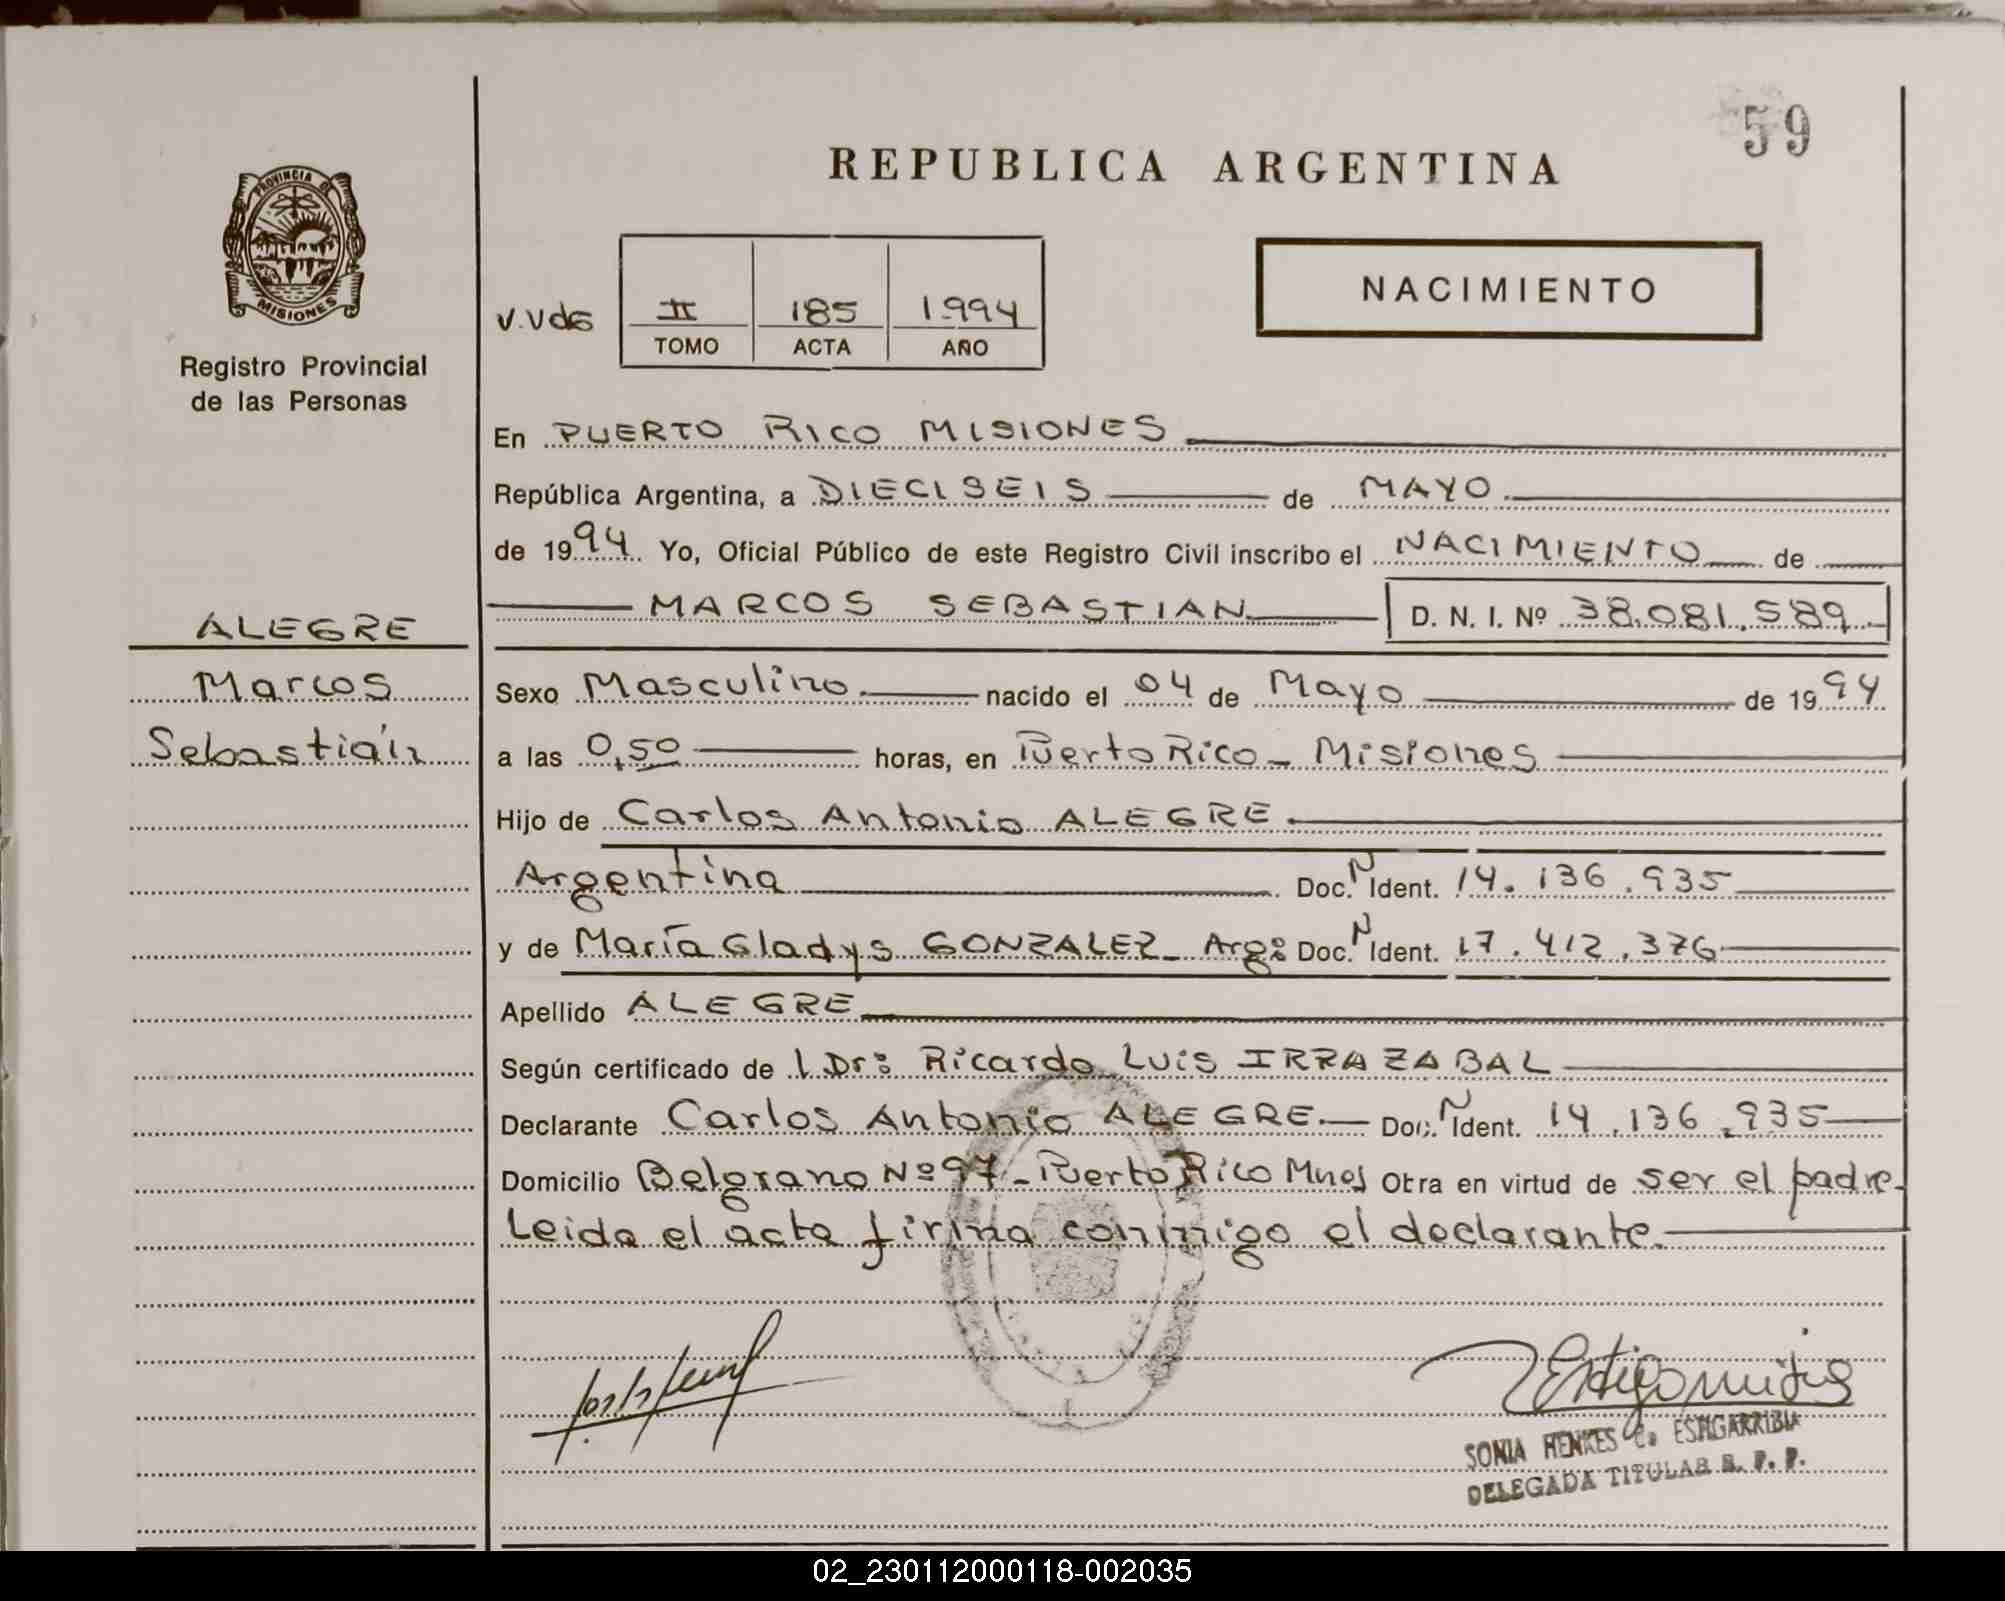 59
REPUBLICA ARGENTINA
PROVINCIA DE
MISIONES
Registro Provincial
de las Personas
II 185 1.994
TOMO ACTA AÑO
NACIMIENTO
En PUERTO RICO MISIONES
República Argentina, a DIECISEIS de MAYO
de 1994 Yo, Oficial Público de este Registro Civil inscribo el NACIMIENTO de
MARCOS SEBASTIAN D. N. I. Nº 38.081.589
ALEGRE
Marcos
Sebastián
Sexo Masculino nacido el 04 de Mayo de 1994
a las 0,50 horas, en Puerto Rico - Misiones
Hijo de Carlos Antonio ALEGRE
Argentina Doc. N Ident. 14.136.935
y de María Gladys GONZALEZ - Arg: Doc. N Ident. 17.412.376
Apellido ALEGRE
Según certificado de l Dr: Ricardo Luis IRRAZABAL
Declarante Carlos Antonio ALEGRE Doc. N Ident. 14.136.935
Domicilio Belgrano Nº 97 - Puerto Rico Mnes Obra en virtud de ser el padre
Leida el acta firma conmigo el declarante.
SONIA HENKES de ESTIGARRIBIA
DELEGADA TITULAR R. P. P.
02_230112000118-002035